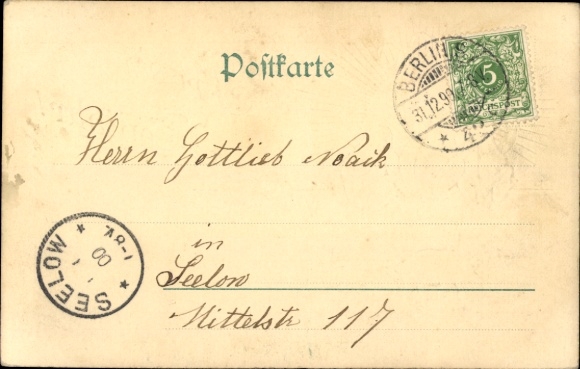 Postkarte
BERLIN
31.12.99
5
REICHSPOST
Herrn Gottlieb Noack
in
Seelow
Mittelstr 117
SEELOW
1 1 00
7-8V.